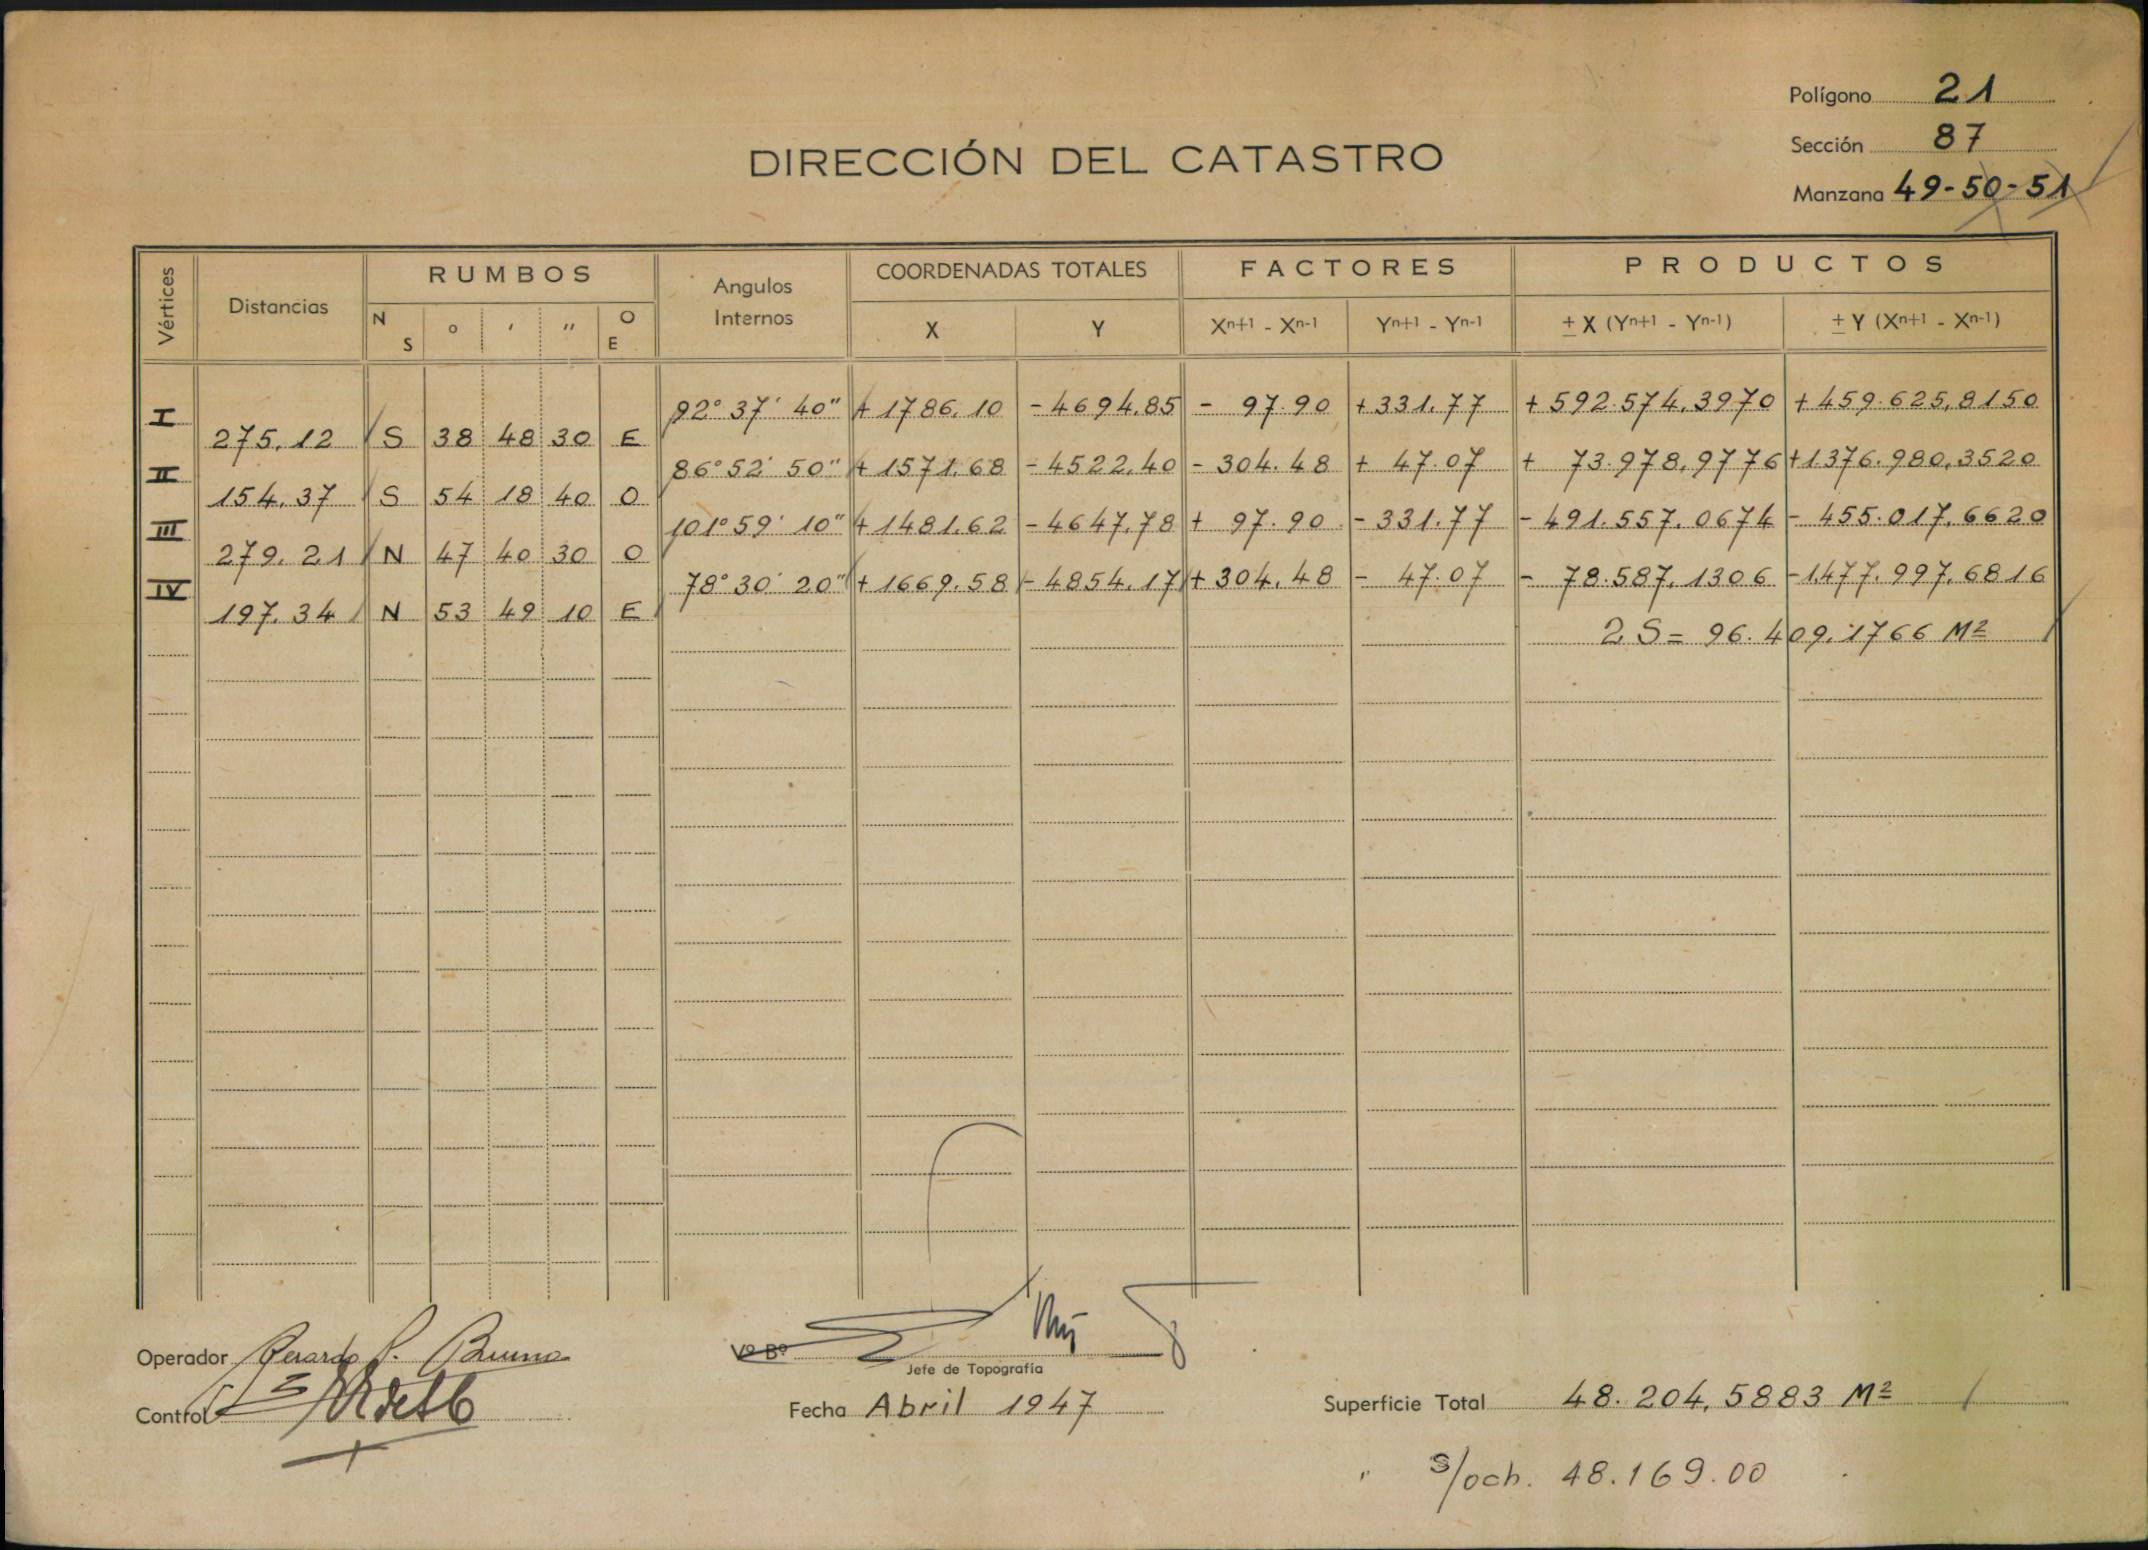 Polígono 21
Sección 87
Manzana 49-50-51
DIRECCIÓN DEL CATASTRO
Vértices
Distancias
RUMBOS
N S
o
'
"
O E
Angulos Internos
COORDENADAS TOTALES
X
Y
FACTORES
Xn+1 - Xn-1
Yn+1 - Yn-1
PRODUCTOS
± X (Yn+1 - Yn-1)
± Y (Xn+1 - Xn-1)
I 92° 37' 40" + 1786.10 - 4694.85 - 97.90 + 331.77 + 592.574,3970 + 459.625,8150
275.12 S 38 48 30 E
II 86° 52' 50" + 1571.68 - 4522.40 - 304.48 + 47.07 + 73.978,9776 + 1.376.980,3520
154.37 S 54 18 40 O
III 101° 59' 10" + 1481.62 - 4647.78 + 97.90 - 331.77 - 491.557.0674 - 455.017,6620
279.21 N 47 40 30 O
IV 78° 30' 20" + 1669.58 - 4854.17 + 304.48 - 47.07 - 78.587,1306 - 1.477.997,6816
197.34 N 53 49 10 E
2 S = 96.409,1766 M²
Operador Gerardo P. Bruno
Control
Vº Bº
Jefe de Topografía
Fecha Abril 1947
Superficie Total 48.204,5883 M²
" s/och. 48.169.00